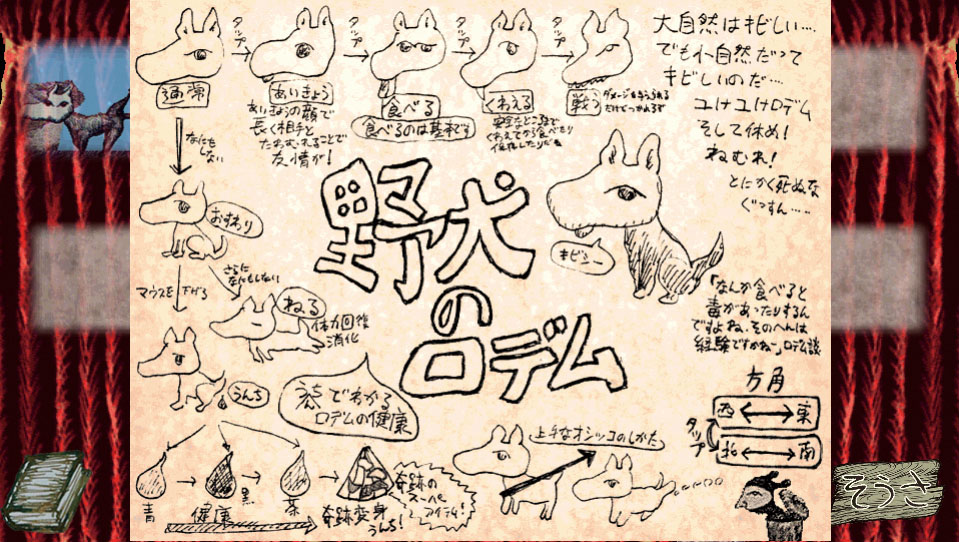 タップ
タップ
タップ
タップ
通常
あいきょう
あいきょうの顔で
長く相手と
たわむれることで
友情が!
食べる
食べるのは基本です
くわえる
安全なところまで
くわえてから食べたり
戦う
ダメージを与えられる
だけでつかれるぞ
大自然はキビしい…
でも小自然だって
キビしいのだ…
ユけユけロデム
そして休め!
ねむれ!
とにかく死ぬな
ぐっすん……
なにも
しない
おすわり
マウスを下げる
さらに
なんもしない
ねる
体力回復
消化
うんち
野犬
の
ロデム
キビシー
「なんか食べると
毒があったりするん
ですよね、そのへんは
経験ですかね〜」ロデム談
うんこでわかる
ロデムの健康
方角
西
東
タップ
北
南
上手なオシッコのしかた
青
健康
黒
茶
奇跡変身
うんち!
奇跡の
スーパー
アイテム!
そうさ